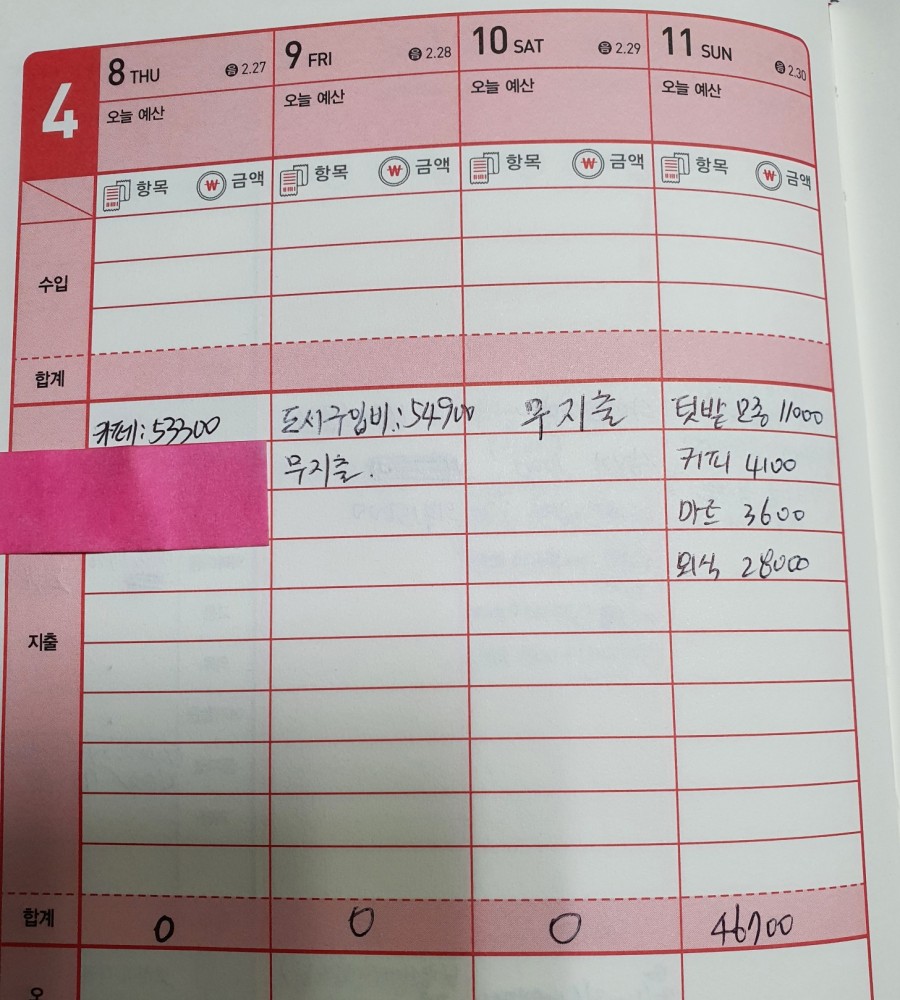 4
8 THU 음 2.27 9 FRI 음 2.28 10 SAT 음 2.29 11 SUN 음 2.30
오늘 예산 오늘 예산 오늘 예산 오늘 예산
항목 ₩ 금액 항목 ₩ 금액 항목 ₩ 금액 항목 ₩ 금액
수입
합계
카페:53300 도시구입비:54900 무지출 텃밭 모종 11000
무지출. 커피 4100
마트 3600
외식 28000
지출
합계 0 0 0 46700
오